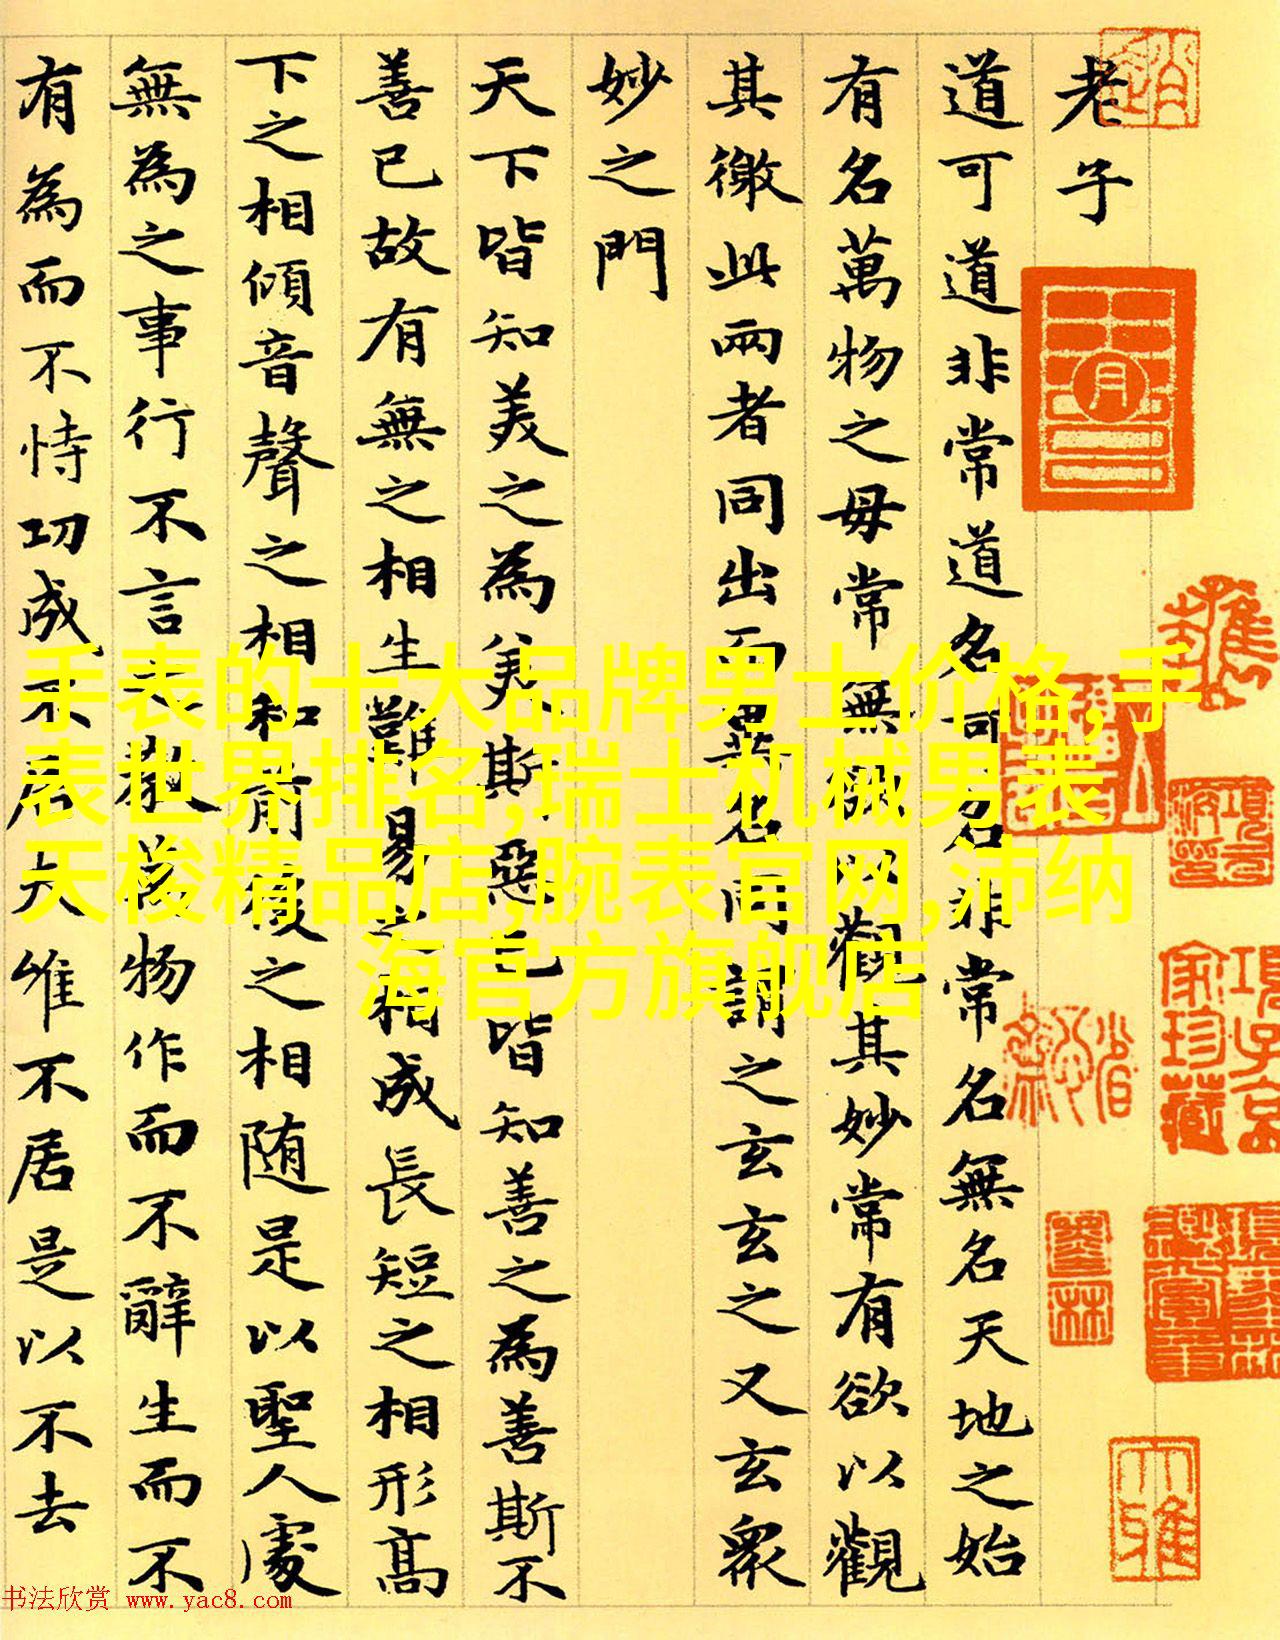 老子
道可道非常道名可名非常名無名天地之始
有名萬物之母常無以觀其妙常有欲以觀
其徼此兩者同出而異名同謂之玄玄之又玄衆
妙之門
天下皆知美之為美斯惡已皆知善之為善斯不
善已故有無之相生難易之相成長短之相形高
下之相傾音聲之相和前後之相随是以聖人處
無為之事行不言之教萬物作而不辭生而不
有為而不恃功成不居夫唯不居是以不去
手表的十大品牌男士价格,手
表世界排名,瑞士机械男表
天梭精品店,腕表官网,沛纳
海官方旗舰店
項子京
家珍藏
书法欣赏 www.yac8.com